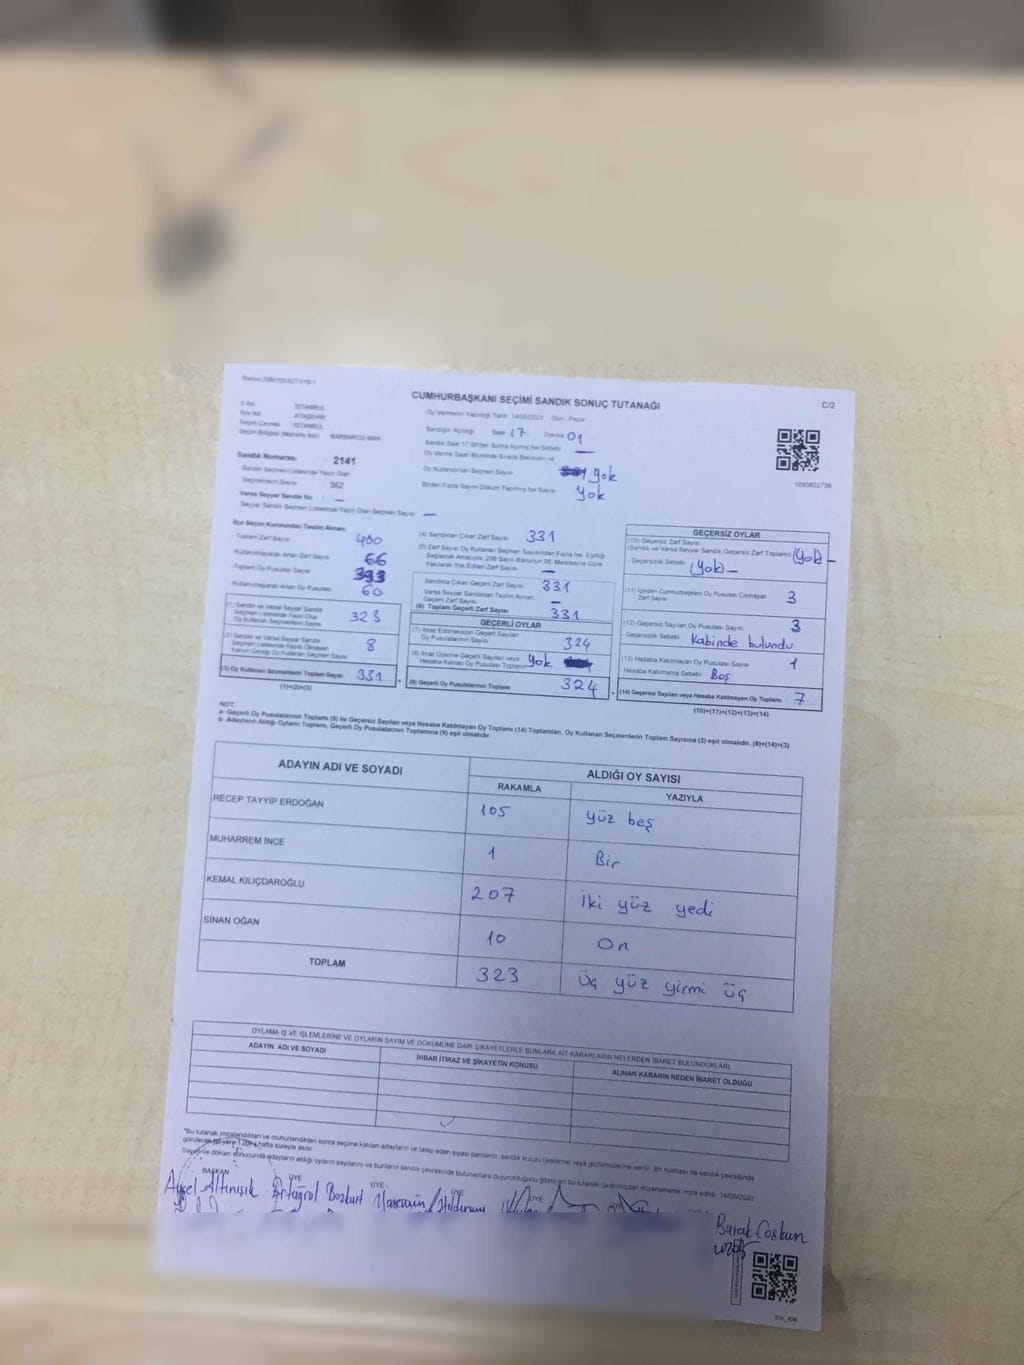 CUMHURBAŞKANI SEÇİMİ SANDIK SONUÇ TUTANAĞI
C/2
İl Adı İSTANBUL
İlçe Adı ATAŞEHİR
Seçim Çevresi İSTANBUL
Seçim Bölgesi (Mahalle Adı) BARBAROS MAH.
Sandık Numarası : 2141
Sandık Seçmen Listesinde Yazılı Olan
Seçmenlerin Sayısı : 362
Varsa Seyyar Sandık No : –
Seyyar Sandık Seçmen Listesinde Yazılı Olan Seçmen Sayısı : –
Oy Vermenin Yapıldığı Tarih 14/05/2023 Gün Pazar
Sandığın Açıldığı Saat 17 Dakika 01
Sandık Saat 17.00'den Sonra Açılmış İse Sebebi : –
Oy Verme Saati Bitiminde Sırada Bekleyen ve
Oy Kullandırılan Seçmen Sayısı yok
Birden Fazla Sayım Döküm Yapılmış İse Sayısı yok
1093822756
İlçe Seçim Kurulundan Teslim Alınan;
Toplam Zarf Sayısı 400
Kullanılmayarak Artan Zarf Sayısı 66
Toplam Oy Pusulası Sayısı 393
Kullanılmayarak Artan Oy Pusulası 60
(1) Sandık ve Varsa Seyyar Sandık
Seçmen Listesinde Yazılı Olup
Oy Kullanan Seçmenlerin Sayısı 323
(2) Sandık ve Varsa Seyyar Sandık
Seçmen Listesinde Kayıtlı Olmayan
Kanun Gereği Oy Kullanan Seçmen Sayısı 8
(3) Oy Kullanan Seçmenlerin Toplam Sayısı 331
(1)+(2)=(3)
(4) Sandıktan Çıkan Zarf Sayısı 331
(5) Zarf Sayısı Oy Kullanan Seçmen Sayısından Fazla İse, Eşitliği
Sağlamak Amacıyla, 298 Sayılı Kanunun 98. Maddesine Göre
Yakılarak Yok Edilen Zarf Sayısı –
Sandıkta Çıkan Geçerli Zarf Sayısı 331
Varsa Seyyar Sandıktan Teslim Alınan
Geçerli Zarf Sayısı –
(6) Toplam Geçerli Zarf Sayısı 331
GEÇERLİ OYLAR
(7) İtiraz Edilmeksizin Geçerli Sayılan
Oy Pusulalarının Sayısı 324
(8) İtiraz Üzerine Geçerli Sayılan veya
Hesaba Katılan Oy Pusulası Toplamı yok
(9) Geçerli Oy Pusulalarının Toplamı 324
GEÇERSİZ OYLAR
(10) Geçersiz Zarf Sayısı
(Sandık ve Varsa Seyyar Sandık Geçersiz Zarf Toplamı) (yok) –
Geçersizlik Sebebi : (yok) –
(11) İçinden Cumhurbaşkanı Oy Pusulası Çıkmayan
Zarf Sayısı 3
(12) Geçersiz Sayılan Oy Pusulası Sayısı 3
Geçersizlik Sebebi : Kabinde bulundu
(13) Hesaba Katılmayan Oy Pusulası Sayısı 1
Hesaba Katılmama Sebebi : Boş
(14) Geçersiz Sayılan veya Hesaba Katılmayan Oy Toplamı 7
(10)+(11)+(12)+(13)=(14)
NOT:
a- Geçerli Oy Pusulalarının Toplamı (9) ile Geçersiz Sayılan veya Hesaba Katılmayan Oy Toplamı (14) Toplamları, Oy Kullanan Seçmenlerin Toplam Sayısına (3) eşit olmalıdır. (9)+(14)=(3)
b- Adayların Aldığı Oyların Toplamı, Geçerli Oy Pusulalarının Toplamına (9) eşit olmalıdır.
ADAYIN ADI VE SOYADI ALDIĞI OY SAYISI
RAKAMLA YAZIYLA
RECEP TAYYİP ERDOĞAN 105 yüz beş
MUHARREM İNCE 1 Bir
KEMAL KILIÇDAROĞLU 207 İki yüz yedi
SİNAN OĞAN 10 On
TOPLAM 323 üç yüz yirmi üç
OYLAMA İŞ VE İŞLEMLERİNE VE OYLARIN SAYIM VE DÖKÜMÜNE DAİR ŞİKAYETLERLE BUNLARA AİT KARARLARIN NELERDEN İBARET BULUNDUKLARI
ADAYIN ADI VE SOYADI İHBAR İTİRAZ VE ŞİKAYETİN KONUSU ALINAN KARARIN NEDEN İBARET OLDUĞU
*Bu tutanak imzalandıktan ve mühürlendikten sonra seçime katılan adayların ve talep eden siyasi partilerin sandık kurulu üyelerine veya gözlemcilerine verilir. Bir nüshası da sandık çevresinde
görülecek bir yere 1 (bir) hafta süreyle asılır.
Sayım ve döküm sonucunda adayların aldığı oyların sayılarını ve bunların sandık çevresinde bulunanlara duyurulduğunu gösteren bu tutanak tarafımızdan düzenlenerek imza edildi. 14/05/2023
BAŞKAN ÜYE ÜYE ÜYE ÜYE
Aysel Altınışık Ertuğrul Bozkurt Yasemin Yıldırım
Burak Coşkun